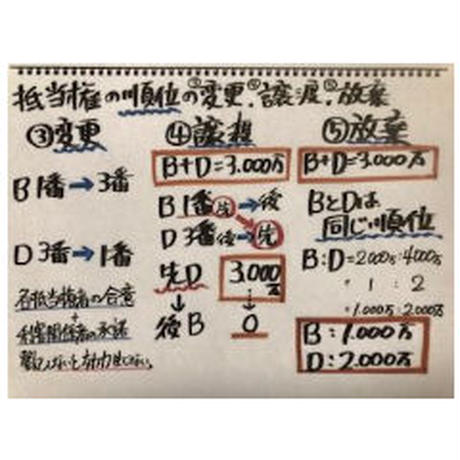 抵当権の順位の③変更.④譲渡.⑤放棄
③変更
B 1番→3番
D 3番→1番
各抵当権者の合意
+
利害関係者の承諾
登記しないと効力生じない。
④譲担
B+D=3.000万
B 1番先→後
D 3番後→先
先D 3.000万
↓
後B 0
⑤放棄
B+D=3.000万
BとDは
同じ順位
B:D=2000万:4000万
=1:2
=1.000万:2.000万
B:1.000万
D:2.000万